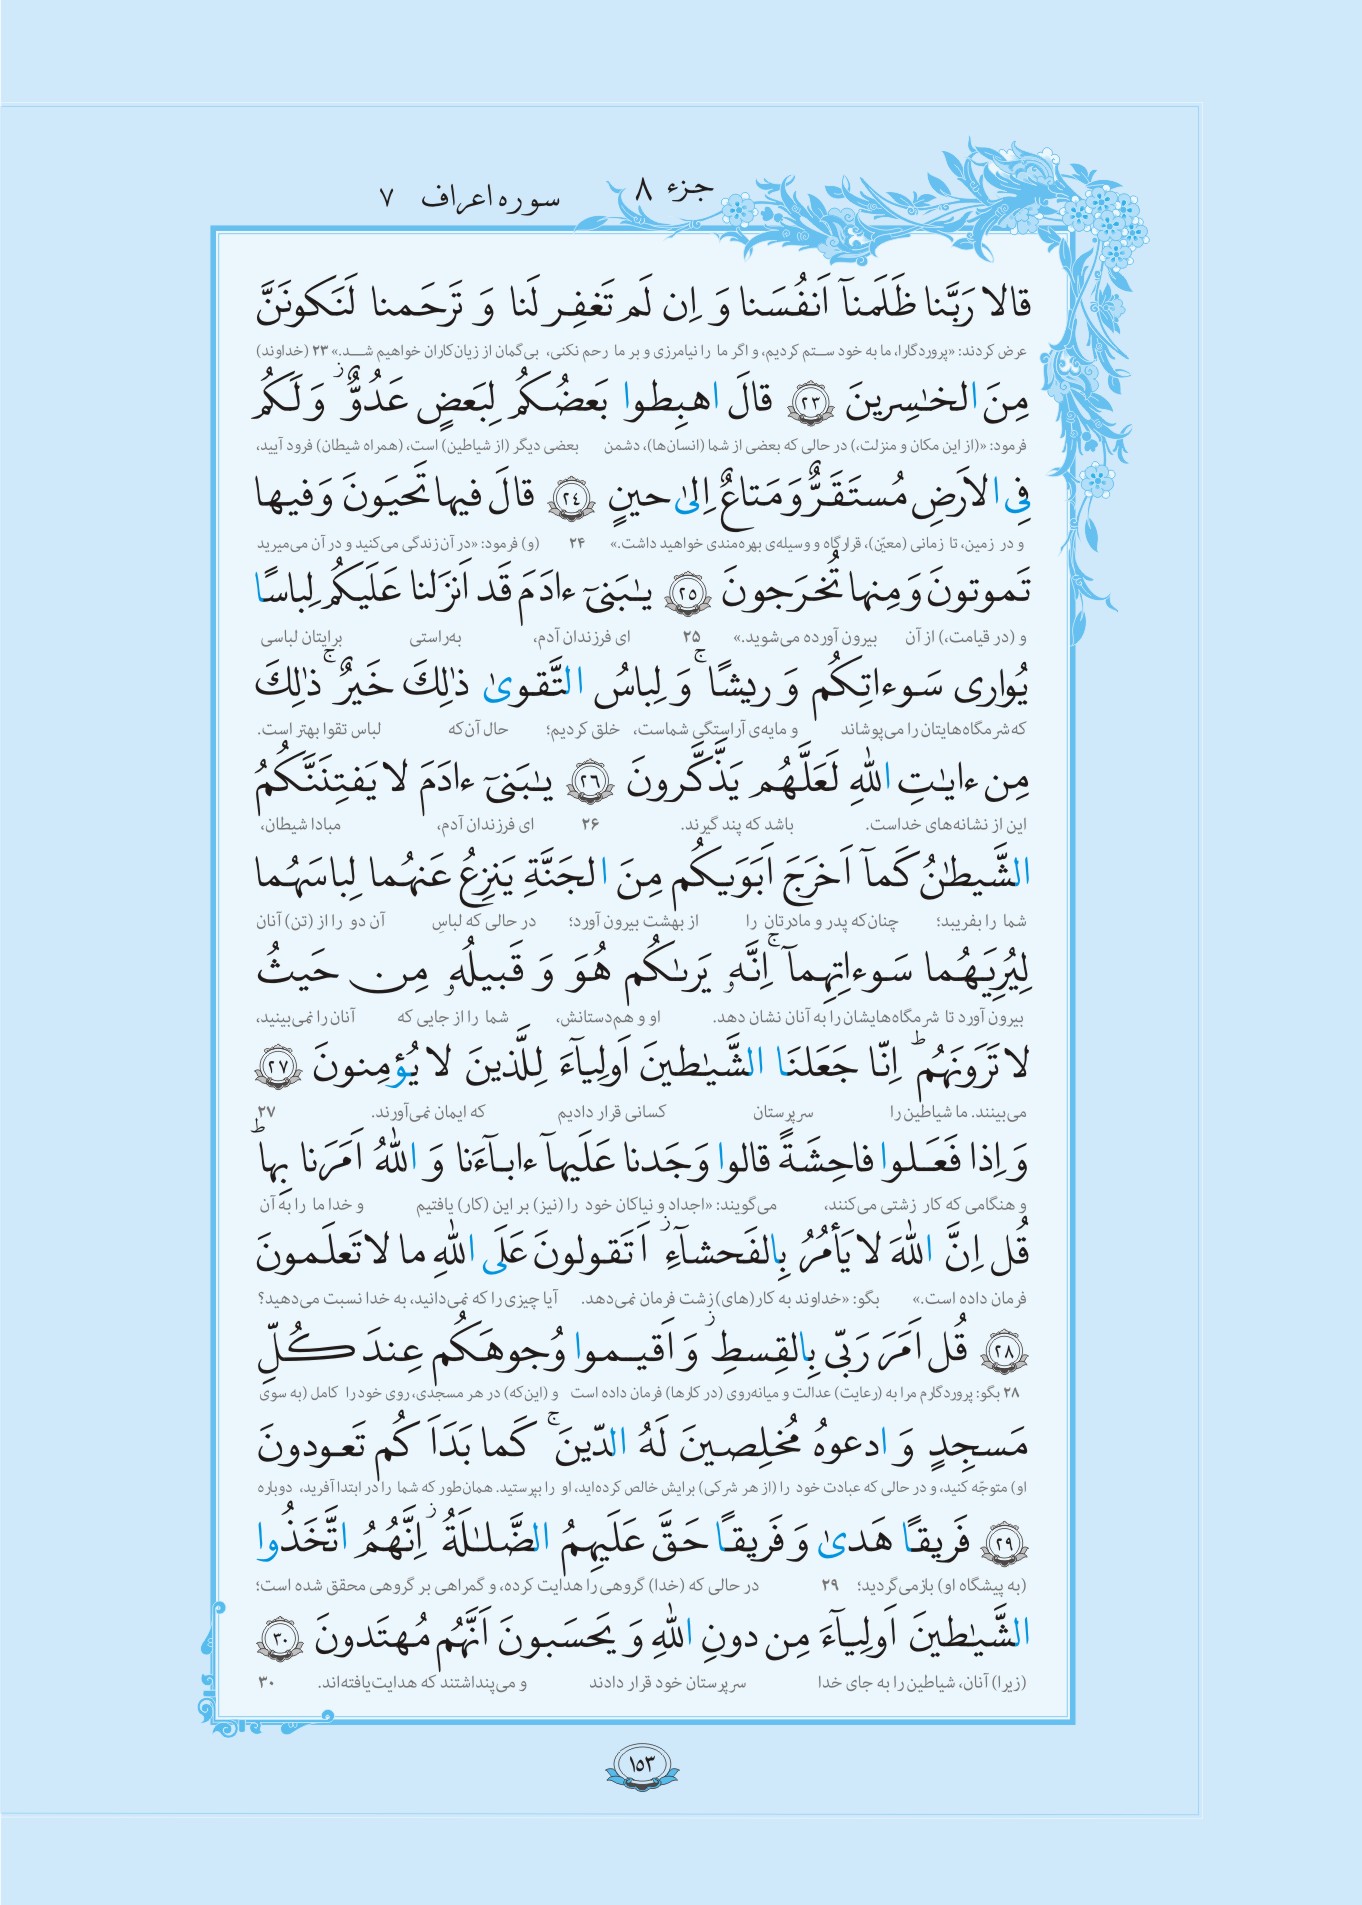 جزء ۸
سوره اعراف ۷
قالا رَبَّنا ظَلَمنآ اَنفُسَنا وَ اِن لَم تَغفِر لَنا وَ تَرحَمنا لَنَکونَنَّ
عرض کردند: «پروردگارا، ما به خود ستم کردیم، و اگر ما را نیامرزی و بر ما رحم نکنی، بی‌گمان از زیان‌کاران خواهیم شد.» ۲۳ (خداوند)
مِنَ الخـٰسِرینَ ﴿۲۳﴾ قالَ اهبِطوا بَعضُکُم لِبَعضٍ عَدُوٌّ ز وَ لَکُم
فرمود: «(از این مکان و منزلت،) در حالی که بعضی از شما (انسان‌ها)، دشمن بعضی دیگر (از شیاطین) است، (همراه شیطان) فرود آیید،
فِی الاَرضِ مُستَقَرٌّ وَ مَتاعٌ اِلیٰ حینٍ ﴿۲۴﴾ قالَ فیها تَحیَونَ وَ فیها
و در زمین، تا زمانی (معیّن)، قرارگاه و وسیله‌ی بهره‌مندی خواهید داشت.» ۲۴ (و) فرمود: «در آن زندگی می‌کنید و در آن می‌میرید
تَموتونَ وَ مِنها تُخرَجونَ ﴿۲۵﴾ یـٰبَنیٓ ءادَمَ قَد اَنزَلنا عَلَیکُم لِباسًا
و (در قیامت،) از آن بیرون آورده می‌شوید.» ۲۵ ای فرزندان آدم، به‌راستی برایتان لباسی
یُواری سَوءاتِکُم وَ ریشًا ۚ وَ لِباسُ التَّقویٰ ذٰلِكَ خَیرٌ ۚ ذٰلِكَ
که شرمگاه‌هایتان را می‌پوشاند و مایه‌ی آراستگی شماست، خلق کردیم؛ حال آن‌که لباس تقوا بهتر است.
مِن ءایـٰتِ اللّٰهِ لَعَلَّهُم یَذَّکَّرونَ ﴿۲۶﴾ یـٰبَنیٓ ءادَمَ لا یَفتِنَنَّکُمُ
این از نشانه‌های خداست. باشد که پند گیرند. ۲۶ ای فرزندان آدم، مبادا شیطان،
الشَّیطـٰنُ کَمآ اَخرَجَ اَبَوَیکُم مِنَ الجَنَّةِ یَنزِعُ عَنهُما لِباسَهُما
شما را بفریبد؛ چنان‌که پدر و مادرتان را از بهشت بیرون آورد؛ در حالی که لباسِ آن دو را از (تن) آنان
لِیُرِیَهُما سَوءاتِهِمآ ۚ اِنَّهٗ یَرىٰکُم هُوَ وَ قَبیلُهٗ مِن حَیثُ
بیرون آورد تا شرمگاه‌هایشان را به آنان نشان دهد. او و هم‌دستانش، شما را از جایی که آنان را نمی‌بینید،
لا تَرَونَهُم ؕ اِنّا جَعَلنَا الشَّیـٰطینَ اَولِیآءَ لِلَّذینَ لا یُؤمِنونَ ﴿۲۷﴾
می‌بینند. ما شیاطین را سرپرستان کسانی قرار دادیم که ایمان نمی‌آورند. ۲۷
وَ اِذا فَعَلوا فاحِشَةً قالوا وَجَدنا عَلَیهآ ءابآءَنا وَ اللّٰهُ اَمَرَنا بِها ؕ
و هنگامی که کار زشتی می‌کنند، می‌گویند: «اجداد و نیاکان خود را (نیز) بر این (کار) یافتیم و خدا ما را به آن
قُل اِنَّ اللّٰهَ لا یَأمُرُ بِالفَحشآءِ ز اَتَقولونَ عَلَی اللّٰهِ ما لا تَعلَمونَ
فرمان داده است.» بگو: «خداوند به کار(های) زشت فرمان نمی‌دهد. آیا چیزی را که نمی‌دانید، به خدا نسبت می‌دهید؟
﴿۲۸﴾ قُل اَمَرَ رَبّی بِالقِسطِ ز وَ اَقیموا وُجوهَکُم عِندَ کُلِّ
۲۸ بگو: پروردگارم مرا به (رعایت) عدالت و میانه‌روی (در کارها) فرمان داده است و (این‌که) در هر مسجدی، روی خود را کامل (به سوی
مَسجِدٍ وَ ادعوهُ مُخلِصینَ لَهُ الدّینَ ۚ کَما بَدَاَکُم تَعودونَ
او) متوجّه کنید، و در حالی که عبادت خود را (از هر شرکی) برایش خالص کرده‌اید، او را بپرستید. همان‌طور که شما را در ابتدا آفرید، دوباره
﴿۲۹﴾ فَریقًا هَدیٰ وَ فَریقًا حَقَّ عَلَیهِمُ الضَّلـٰلَةُ ز اِنَّهُمُ اتَّخَذُوا
(به پیشگاه او) بازمی‌گردید؛ ۲۹ در حالی که (خدا) گروهی را هدایت کرده، و گمراهی بر گروهی محقق شده است؛
الشَّیـٰطینَ اَولِیآءَ مِن دونِ اللّٰهِ وَ یَحسَبونَ اَنَّهُم مُهتَدونَ ﴿۳۰﴾
(زیرا) آنان، شیاطین را به جای خدا سرپرستان خود قرار دادند و می‌پنداشتند که هدایت‌یافته‌اند. ۳۰
۱۵۳